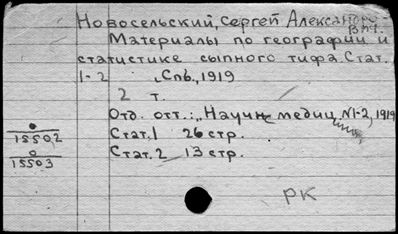 Новосельский, Сергей Александро-
вич.
Материалы по географии и
статистике сыпного тифа. Стат.
1-2 , Спб, 1919
2 т.
Отд. отт.: „Научн медиц, №1-2, 1919
15502 Стат. 1 26 стр.
15503 Стат. 2 13 стр.
РК